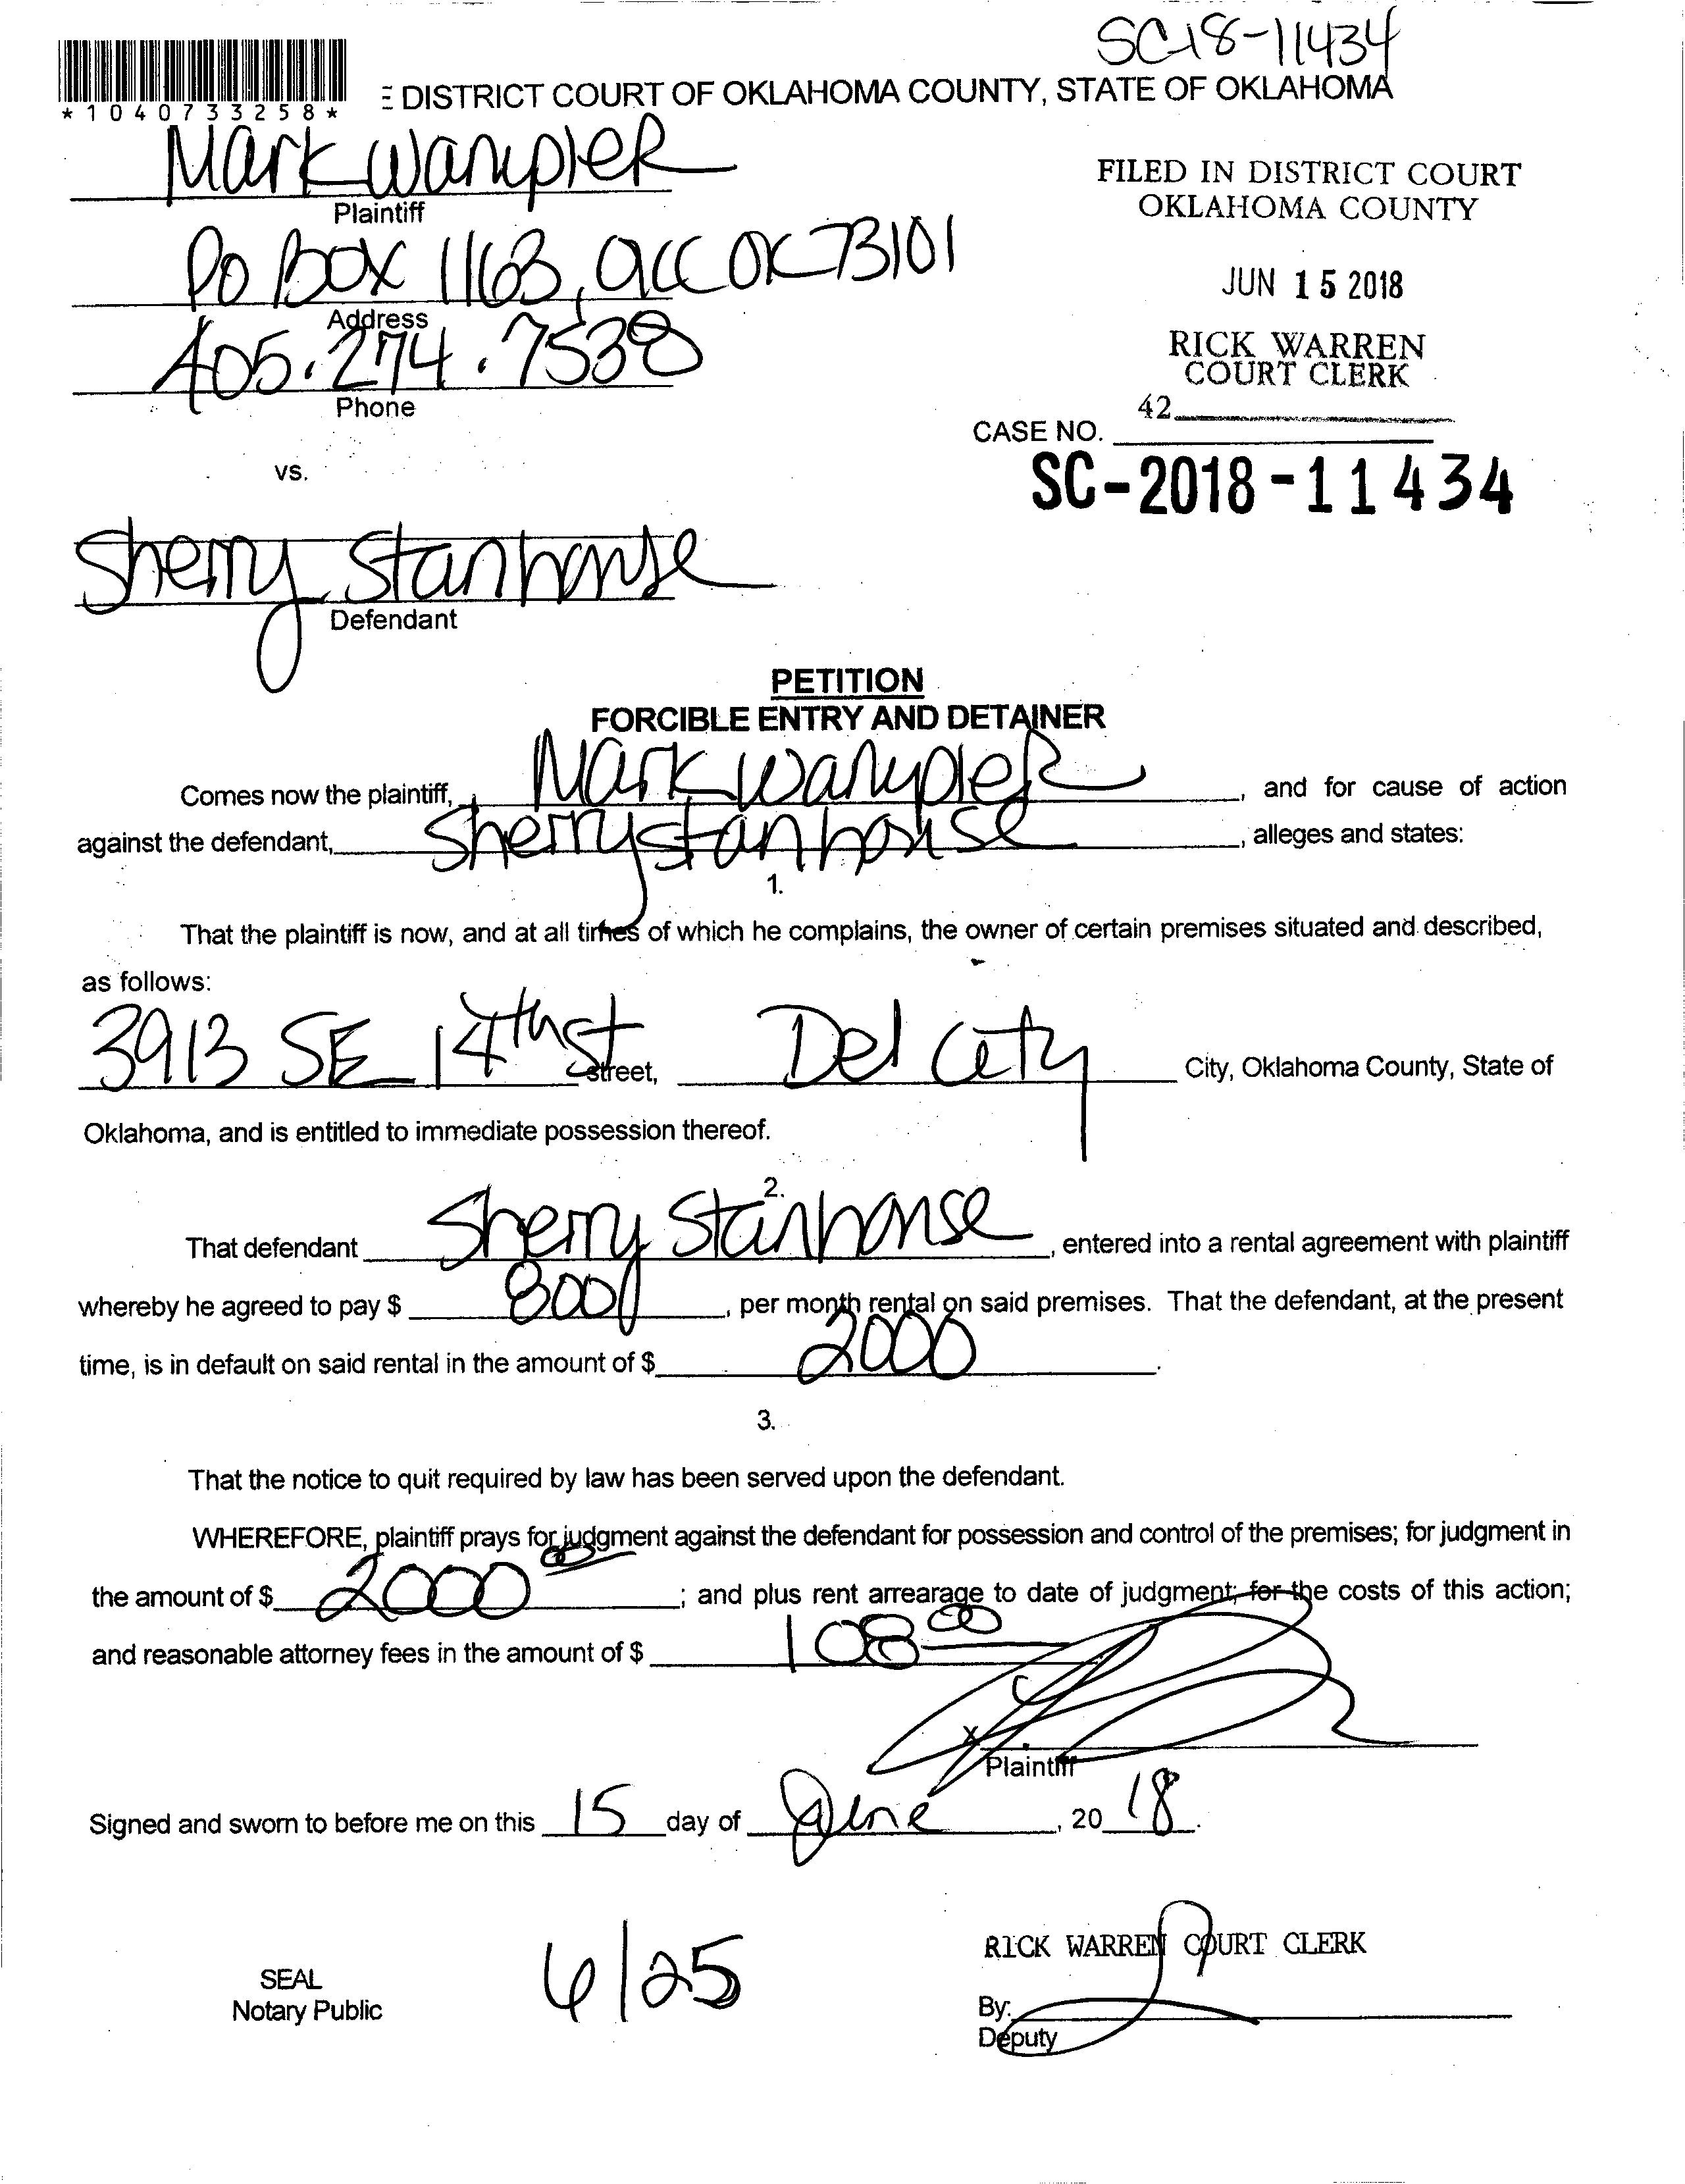 SC-18-11434
*1040733258*
DISTRICT COURT OF OKLAHOMA COUNTY, STATE OF OKLAHOMA
Mark Wampler
Plaintiff
FILED IN DISTRICT COURT
OKLAHOMA COUNTY
PO BOX 1163, OKC OK 73101
Address
JUN 15 2018
405.274.7538
Phone
RICK WARREN
COURT CLERK
42
CASE NO.
SC-2018-11434
vs.
Sherry Stanhouse
Defendant
PETITION
FORCIBLE ENTRY AND DETAINER
Comes now the plaintiff, Mark Wampler, and for cause of action
against the defendant, Sherry Stanhouse, alleges and states:
1.
That the plaintiff is now, and at all times of which he complains, the owner of certain premises situated and described,
as follows:
3913 SE 14th St Street, Del City City, Oklahoma County, State of
Oklahoma, and is entitled to immediate possession thereof.
2.
That defendant Sherry Stanhouse, entered into a rental agreement with plaintiff
whereby he agreed to pay $ 800, per month rental on said premises. That the defendant, at the present
time, is in default on said rental in the amount of $ 2000.
3.
That the notice to quit required by law has been served upon the defendant.
WHEREFORE, plaintiff prays for judgment against the defendant for possession and control of the premises; for judgment in
the amount of $ 2000 00; and plus rent arrearage to date of judgment; for the costs of this action;
and reasonable attorney fees in the amount of $ 108 00
X
Plaintiff
Signed and sworn to before me on this 15 day of June, 2018.
RICK WARREN COURT CLERK
SEAL
Notary Public
6/25
By:
Deputy